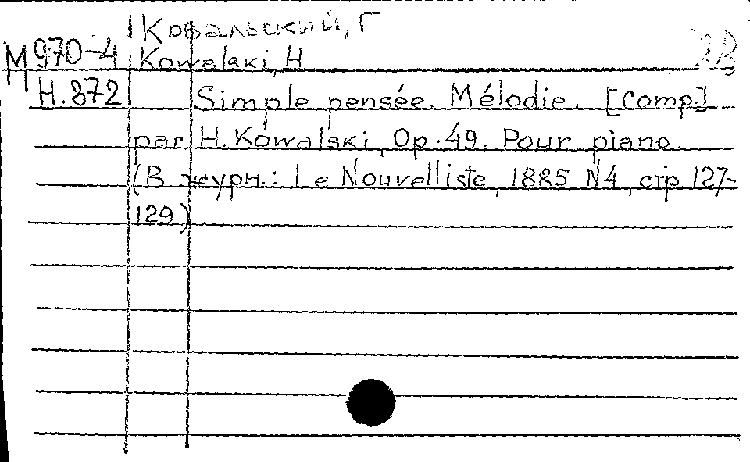 Ковальский, Г
М 970-4 Kowalski, H
Н.872 Simple pensée. Mélodie. [Comp.]
par H. Kowalski, Op. 49. Pour piano.
(В журн.: Le Nouvelliste, 1885 N4, стр 127-
129)